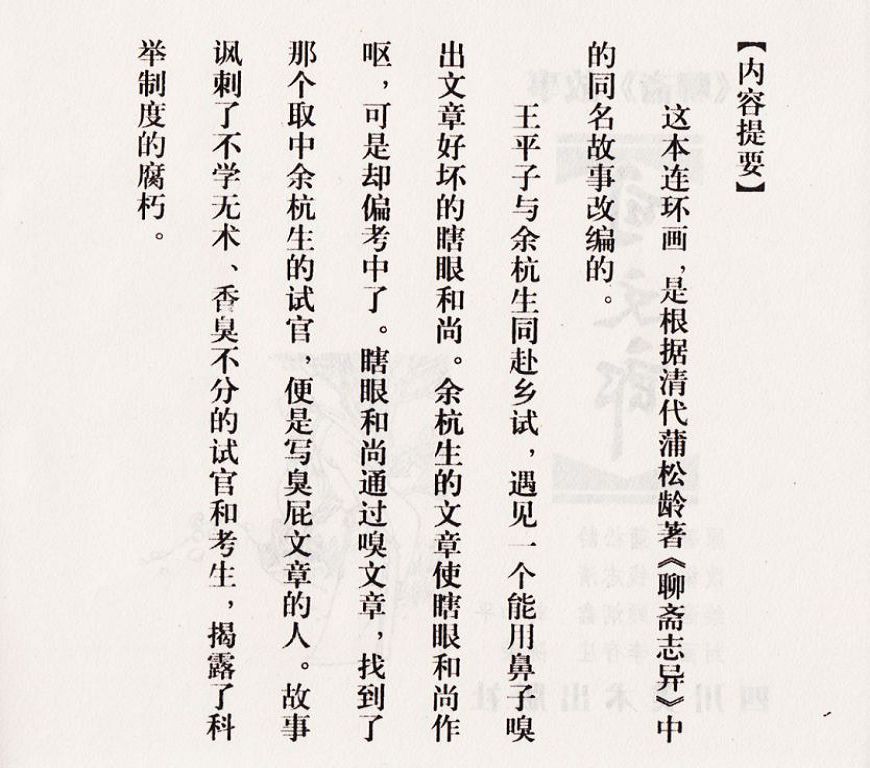 【内容提要】
这本连环画，是根据清代蒲松龄著《聊斋志异》中
的同名故事改编的。
王平子与余杭生同赴乡试，遇见一个能用鼻子嗅
出文章好坏的瞎眼和尚。余杭生的文章使瞎眼和尚作
呕，可是却偏考中了。瞎眼和尚通过嗅文章，找到了
那个取中余杭生的试官，便是写臭屁文章的人。故事
讽刺了不学无术、香臭不分的试官和考生，揭露了科
举制度的腐朽。